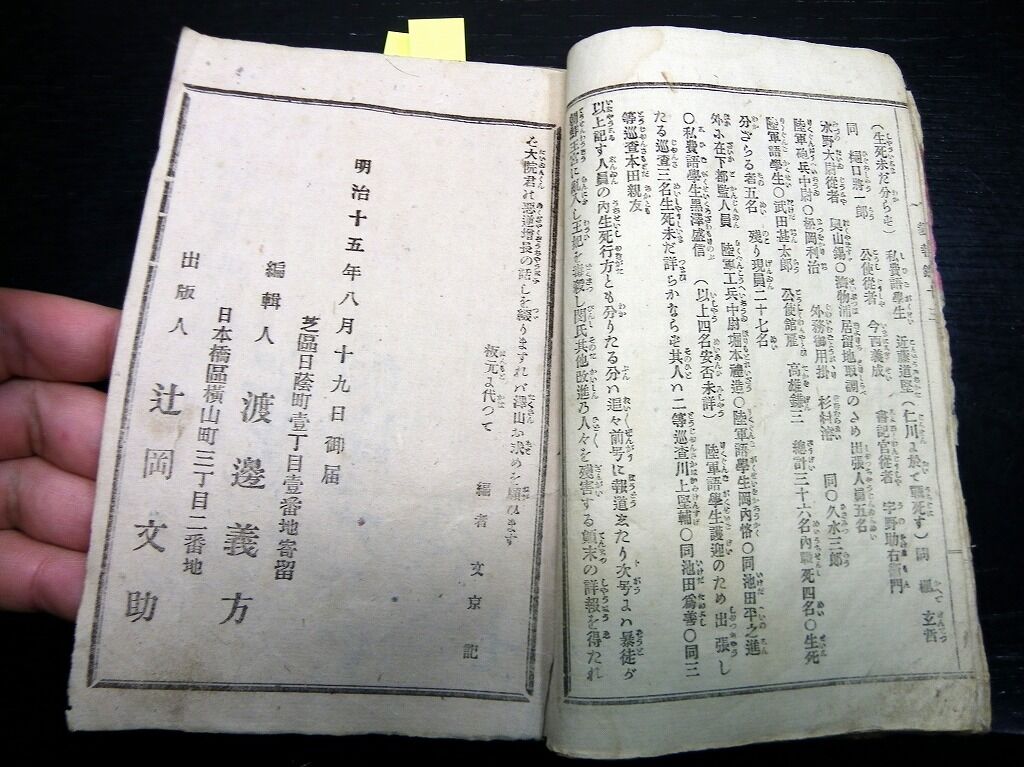 (生死未だ分らず) 私費語學生 近藤道堅(仁川よ於て戰死す)同 玄哲
同 樋口將一郎 公使從者 今西義成 書記官從者 宇野助右衛門
水野大尉從者 奥山錫〇濟物浦居留地取調のため出張人員五名
陸軍砲兵中尉〇松岡利治 外務御用掛 杉村濬 同〇久水三郎
陸軍語學生〇武田甚太郎 公使館雇 高雄鎌三 總計三十六名內戰死四名〇生死
分ざらる者五名 殘り現員二十七名
外ふ在下都監人員 陸軍工兵中尉堀本禮造〇陸軍語學生岡內恪〇同池田平之進
〇私費語學生黒澤盛信 (以上四名安否未詳) 陸軍語學生護迎のため出張し
たる巡査三名生死未だ詳らかならず其人ハ二等巡査川上堅輔〇同池田爲善〇同三
等巡査本田親友
以上記す人員の內生死行方とも分りたる分ハ追々前号に報道またり次号よハ暴徒が
朝鮮王宮に亂入し王妃を毒殺し閔氏其他改進乃人々を殘害する顛末の詳報を得たれ
ど大院君の惡逆增長の話しを綴りますれバ澤山お求めを願ひます
板元よ代つて 編者 文京 記
明治十五年八月十九日御届
芝區日蔭町壹丁目壹番地寄留
編輯人 渡邊義方
日本橋區橫山町三丁目二番地
出版人 辻岡文助